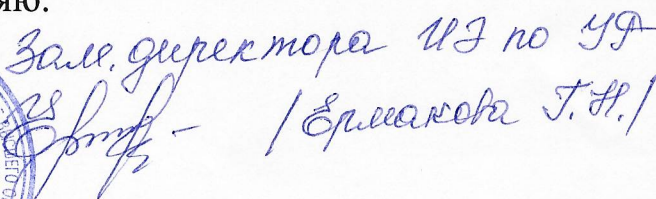 яю.
Зам. директора ИЭ по УР
/ Ермакова Г.Н. /